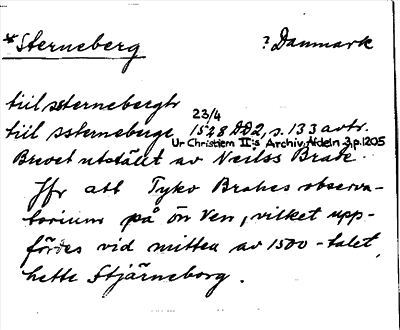 *Sterneberg ? Danmark
tiil sternebergh
23/4
tiil ssterneberge 1528 DD2, s. 133 avtr.
Ur Christiern II:s Archiv, Afdeln 3, p.1205
Brevet utställt av Neilss Brade.
Jfr att Tyko Brahes observa-
torium på ön Ven, vilket upp-
fördes vid mitten av 1500-talet,
hette Stjärneborg.